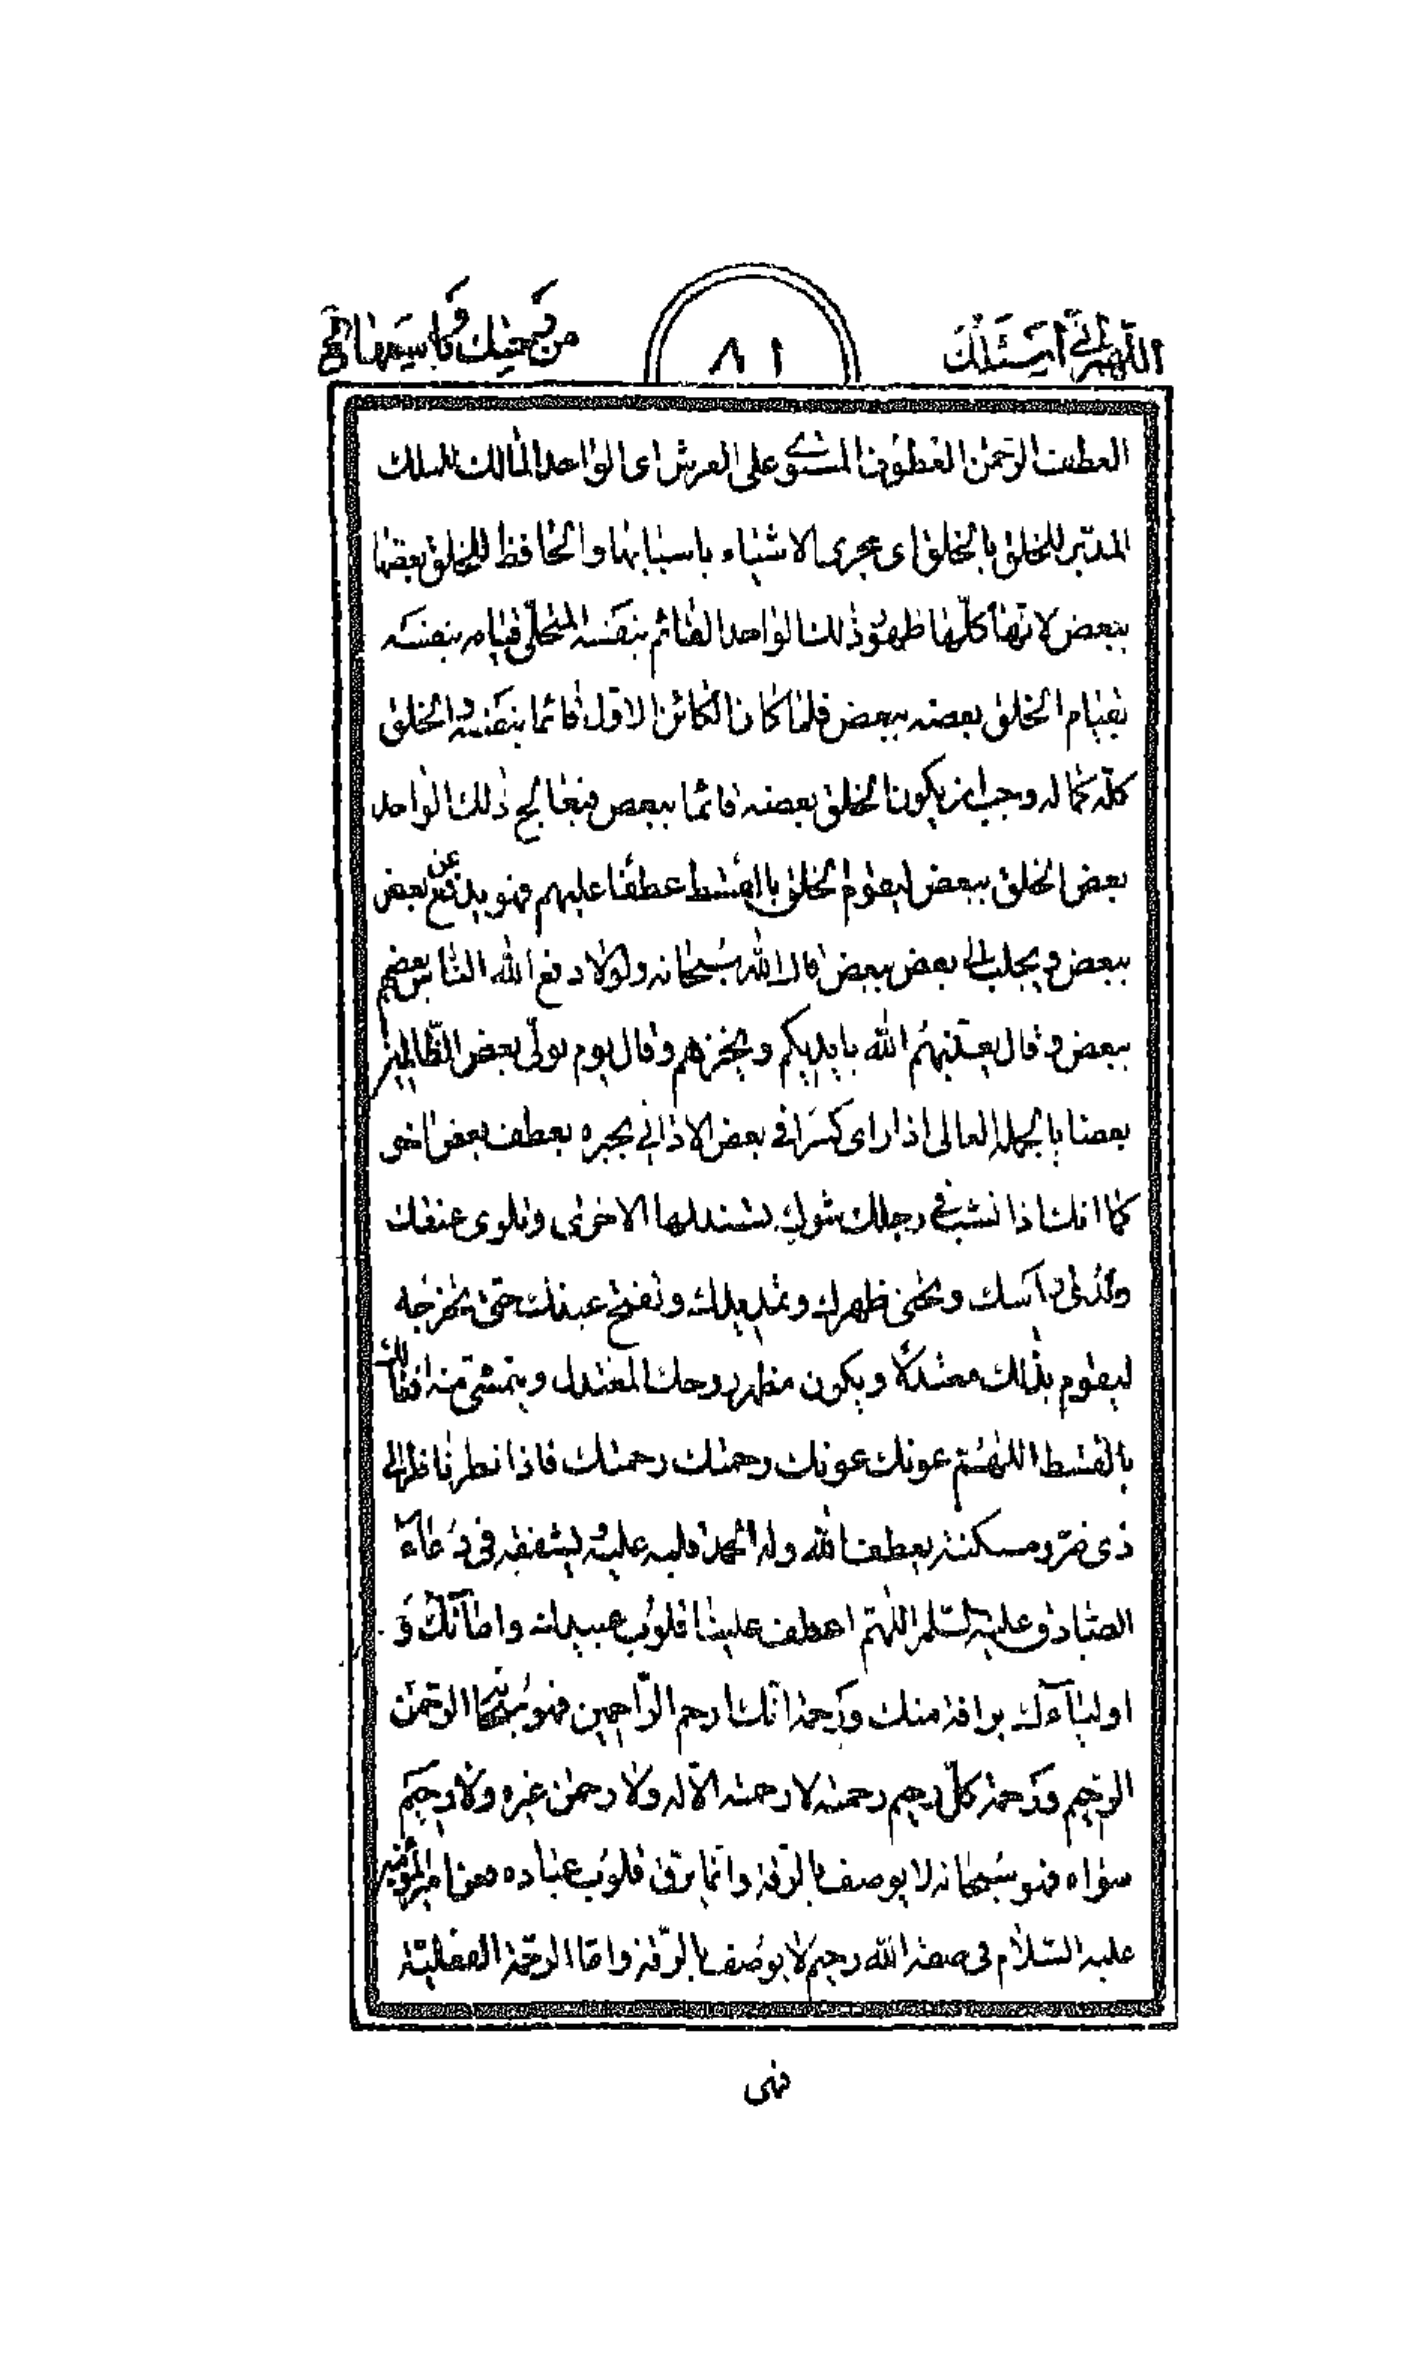 اللهم اني اسئلك
٨١
من رحمتك باوسعها الخ
العطف الرحمن العطوف المستوي على العرش اى الواحد المالك للملك
المدبر للخلق بالخلق اى مجرى الاشياء باسبابها والحافظ للخلق بعضها
ببعض لانها كلها ظهور ذلك الواحد القائم بنفسه المتجلى قيامه بنفسه
بقيام الخلق بعضه ببعض فلما كان الكائن الاول قائما بنفسه والخلق
كله كماله وجب ان يكون الخلق بعضه قائما ببعض فيعالج ذلك الواحد
بعض الخلق ببعض ليقوم الخلق بالقسط عطفا عليهم فهو يدفع عن بعض
ببعض ويجلب الى بعض ببعض قال الله سبحانه ولولا دفع الله الناس بعضهم
ببعض وقال يعذبهم الله بايديكم ويخزهم وقال يوم نولى بعض الظالمين
بعضا بالجملة العالى اذا راى كسرا في بعض الادانى يجبره بعطف بعض نحو
كما انك اذا نشب في رجلك شوك تستند لها الاخرى وتلوى عنقك
وتدلى راسك وتحنى ظهرك وتمد يدك وتفتح عينك حتى يخرجه
ليقوم بذلك معتدلا ويكون مظهر روحك المعتدل ويتمشى منه افعالك
بالقسط اللهم عونك عونك رحمتك رحمتك فاذا نظر ناظر الى
ذى ضر ومسكنة يعطف الله وله الحمد قلبه عليه ليشفقه في دعاء
الصادق عليه السلم اللهم اعطف علينا قلوب عبيدك وامائك و
اوليآءك برافة منك ورحمة انك ارحم الراحمين فهو سبحانه الرحمن
الرحيم ورحمة كل رحيم رحمته لا رحمة الا له ولا رحمن غيره ولا رحيم
سواه فهو سبحانه لا يوصف بالرقة وانما يرق قلوب عباده فعن امير المؤمنين
عليه السلام في صفة الله رحيم لا يوصف بالرقة واما الرحمة الفعلية
فهى